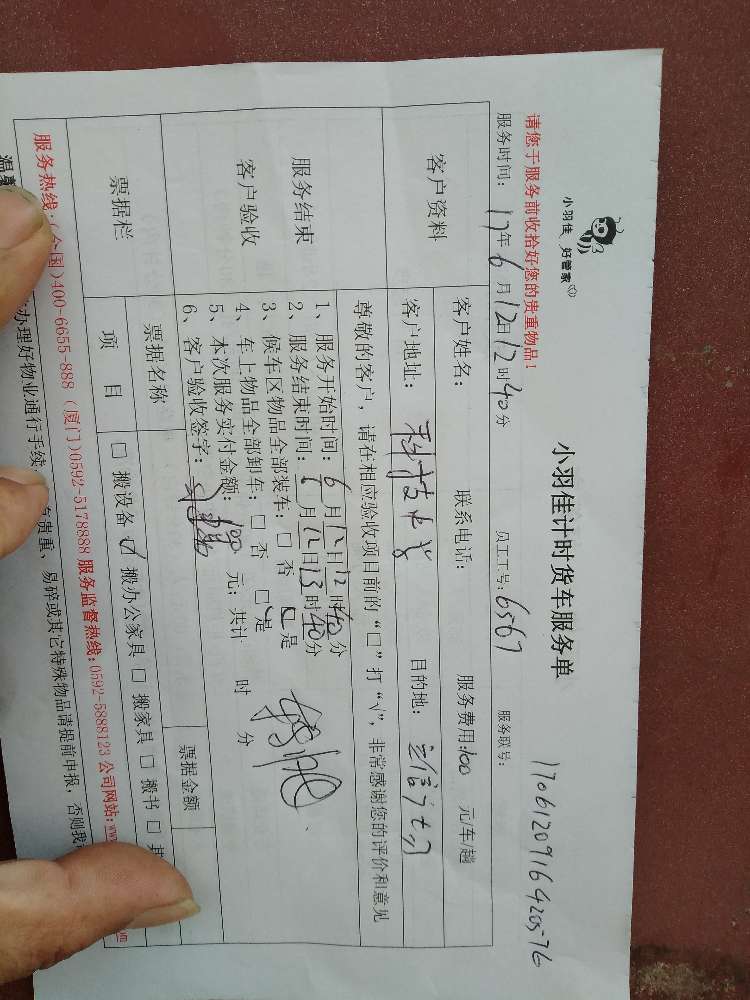 小羽佳 好管家
小羽佳计时货车服务单
1706120916420576
请您于服务前收拾好您的贵重物品！
服务时间：17年6月12日12时40分 员工工号：6567 服务联号：
客户资料
客户姓名： 联系电话： 服务费用:100 元/车/趟
客户地址： 目的地：
尊敬的客户，请在相应验收项目前的“□”打“√”，非常感谢您的评价和意见
服务结束
客户验收
1、服务开始时间：6月12日12时40分
2、服务结束时间：6月12日13时40分
3、候车区物品全部装车：□ 否 □ 是
4、车上物品全部卸车：□ 否 □ 是
5、本次服务实付金额：100 元；共计 时 分
6、客户验收签字：
票据栏
票据名称 票据金额
项 目
□ 搬设备 ☑ 搬办公家具 □ 搬家具 □ 搬书 □ 其
服务热线:(全国)400-6655-888 (厦门)0592-5178888 服务监督热线:0592-5888123 公司网站:www
温馨
办理好物业通行手续
贵重、易碎或其它特殊物品请提前申报，否则我